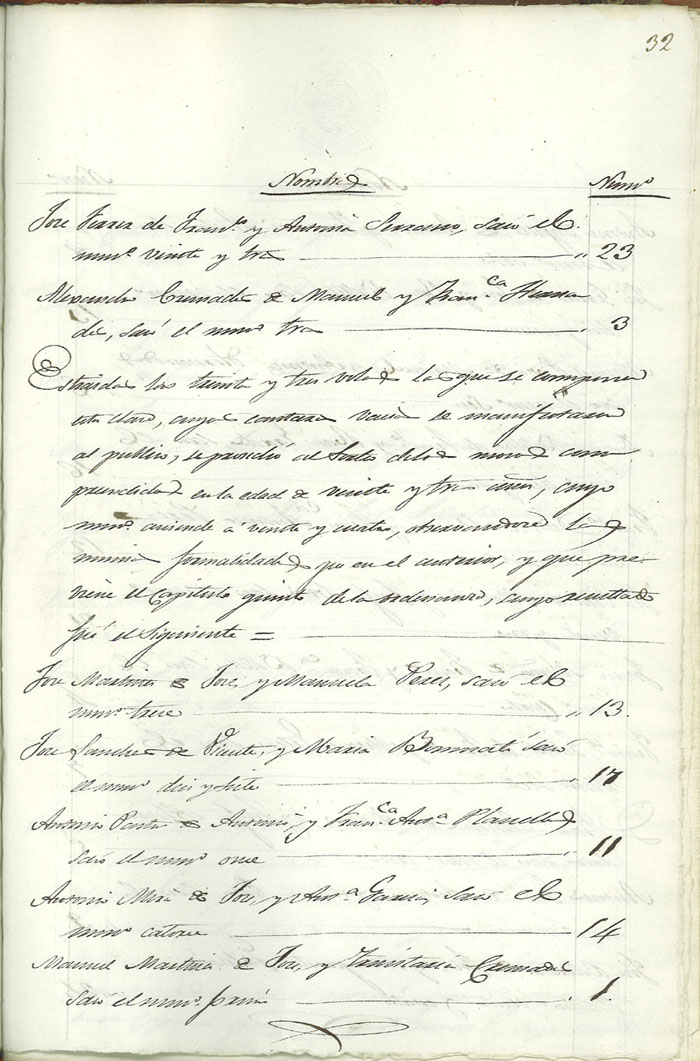 32
Nombres Numº
Jose Ferrer de Franco y Antonia Serrano, sacó el
numº veinte y tres " 23
Alexandro Cremades de Manuel y Franca
de, sacó el numº tres . 3
Estraidas las treinta y tres bolas las que se componen
esta clase, cuyo cantaro vacio se manifestaron
al publico, se prosedió al Sorteo de los mosos com
prendidos en la edad de veinte y tres años, cuyo
numº asiende á veinte y cuatro, las
misma formalidades que en el anterior, y que pre-
viene el Capitulo quinto de la ordenansa, cuyo resultado
fué el Siguiente =
Jose Martines de Jose, y Manuela Peres, sacó el
numº trese " 13.
Jose Sanches de Visente, y Maria sacó
el numº dies y siete . 17
Antonio de Antonio, y Franca Anta Planelles
sacó el numº onse . 11
Antonio Mira de Jose, y Anta Garcia, sacó el
numº catorse 14
Manuel Martines de Jose, y Cremades
sacó el numº primº . 1.